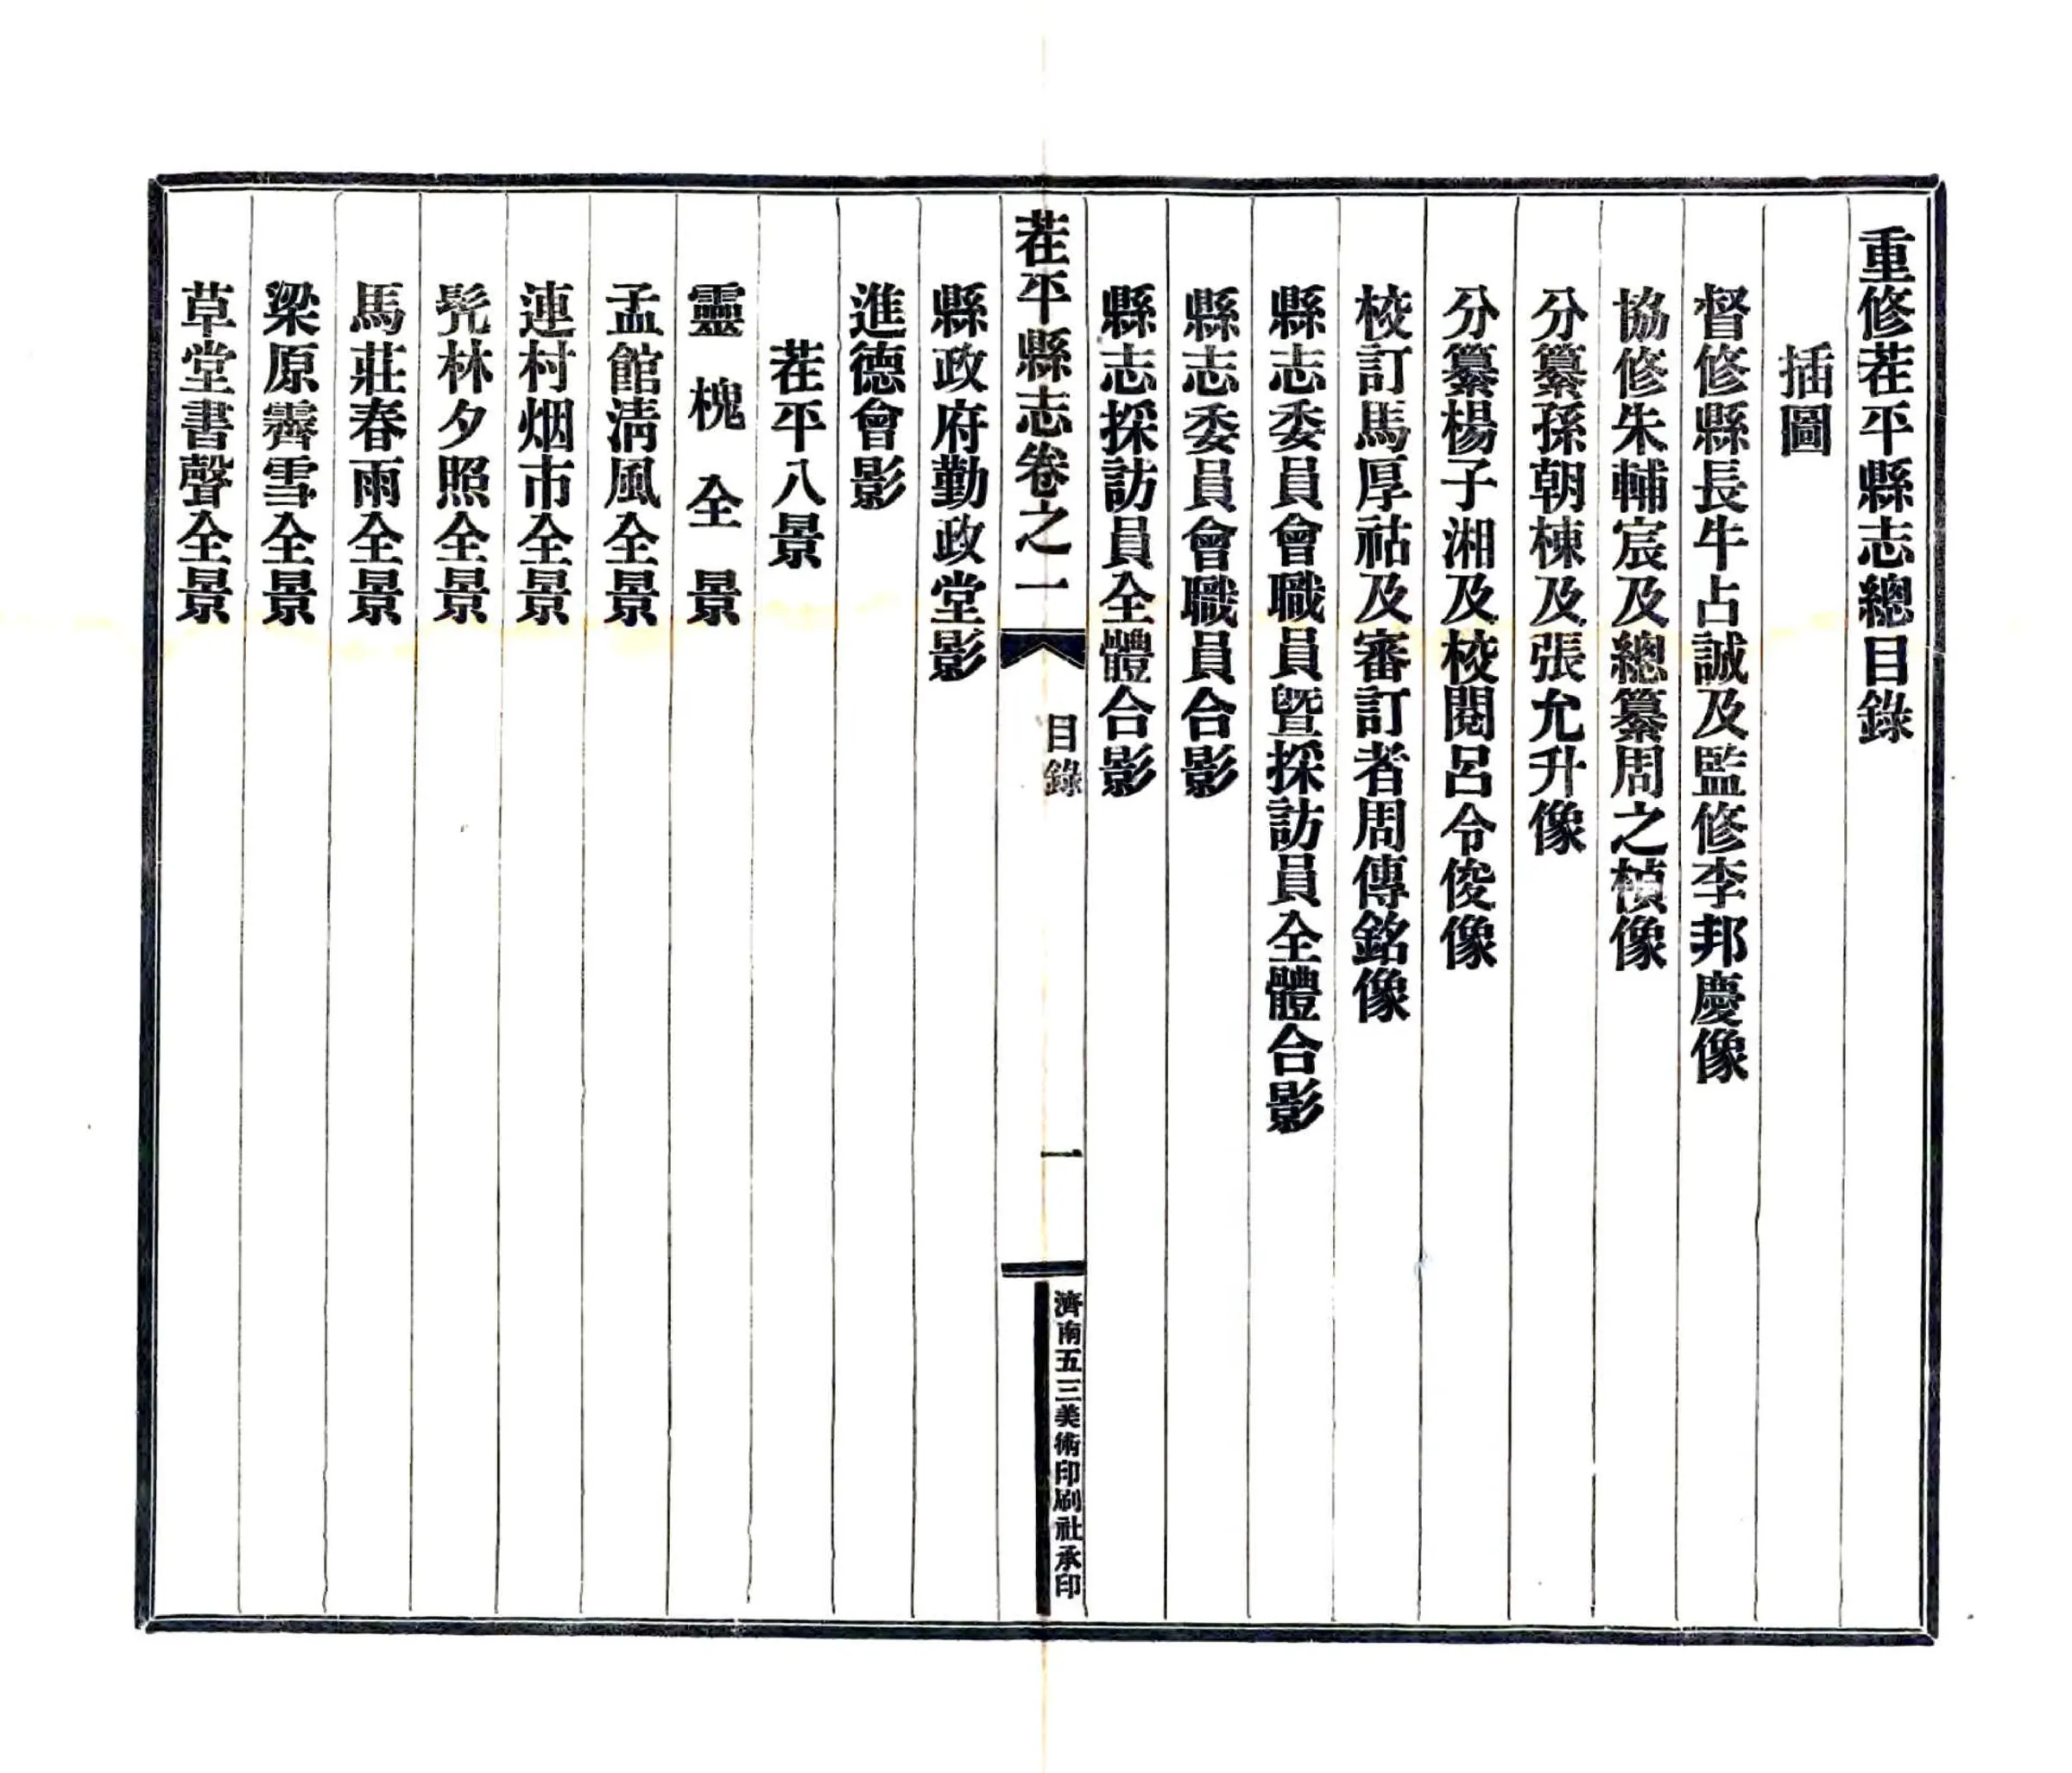 重修茌平縣志總目錄
插圖
督修縣長牛占誠及監修李邦慶像
協修朱輔宸及總纂周之楨像
分纂孫朝棟及張允升像
分纂楊子湘及校閱呂令俊像
校訂馬厚祜及審訂者周傳銘像
縣志委員會職員暨採訪員全體合影
縣志委員會職員合影
縣志採訪員全體合影
茌平縣志卷之一
目錄
一
濟南五三美術印刷社承印
縣政府勤政堂影
進德會影
茌平八景
靈槐全景
孟館淸風全景
連村烟市全景
髠林夕照全景
馬莊春雨全景
梁原霽雪全景
草堂書聲全景